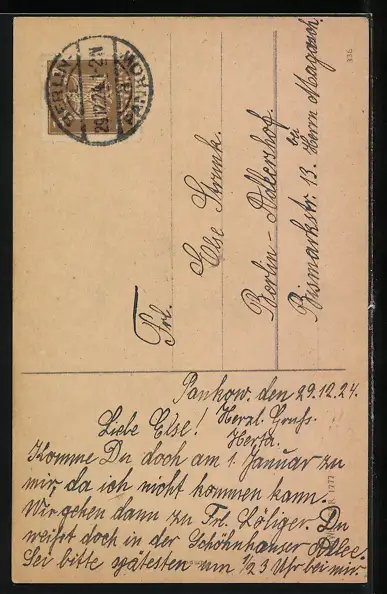 BERLIN-
29.12.24. 1-2 N
336
Frl.
Else Strunk.
Berlin-Adlershof.
Bismarkstr. 13. bei Herrn Magasch.
Pankow, den 29.12.24.
Liebe Else! Herzl. Gruß.
Herta.
Komme Du doch am 1. Januar zu
mir, da ich nicht kommen kann.
Wir gehen dann zu Frl. Löliger. Du
weißt doch in der Schöhnhauser Allee.
Sei bitte spätesten um 1/2 3 Uhr bei mir.
1777